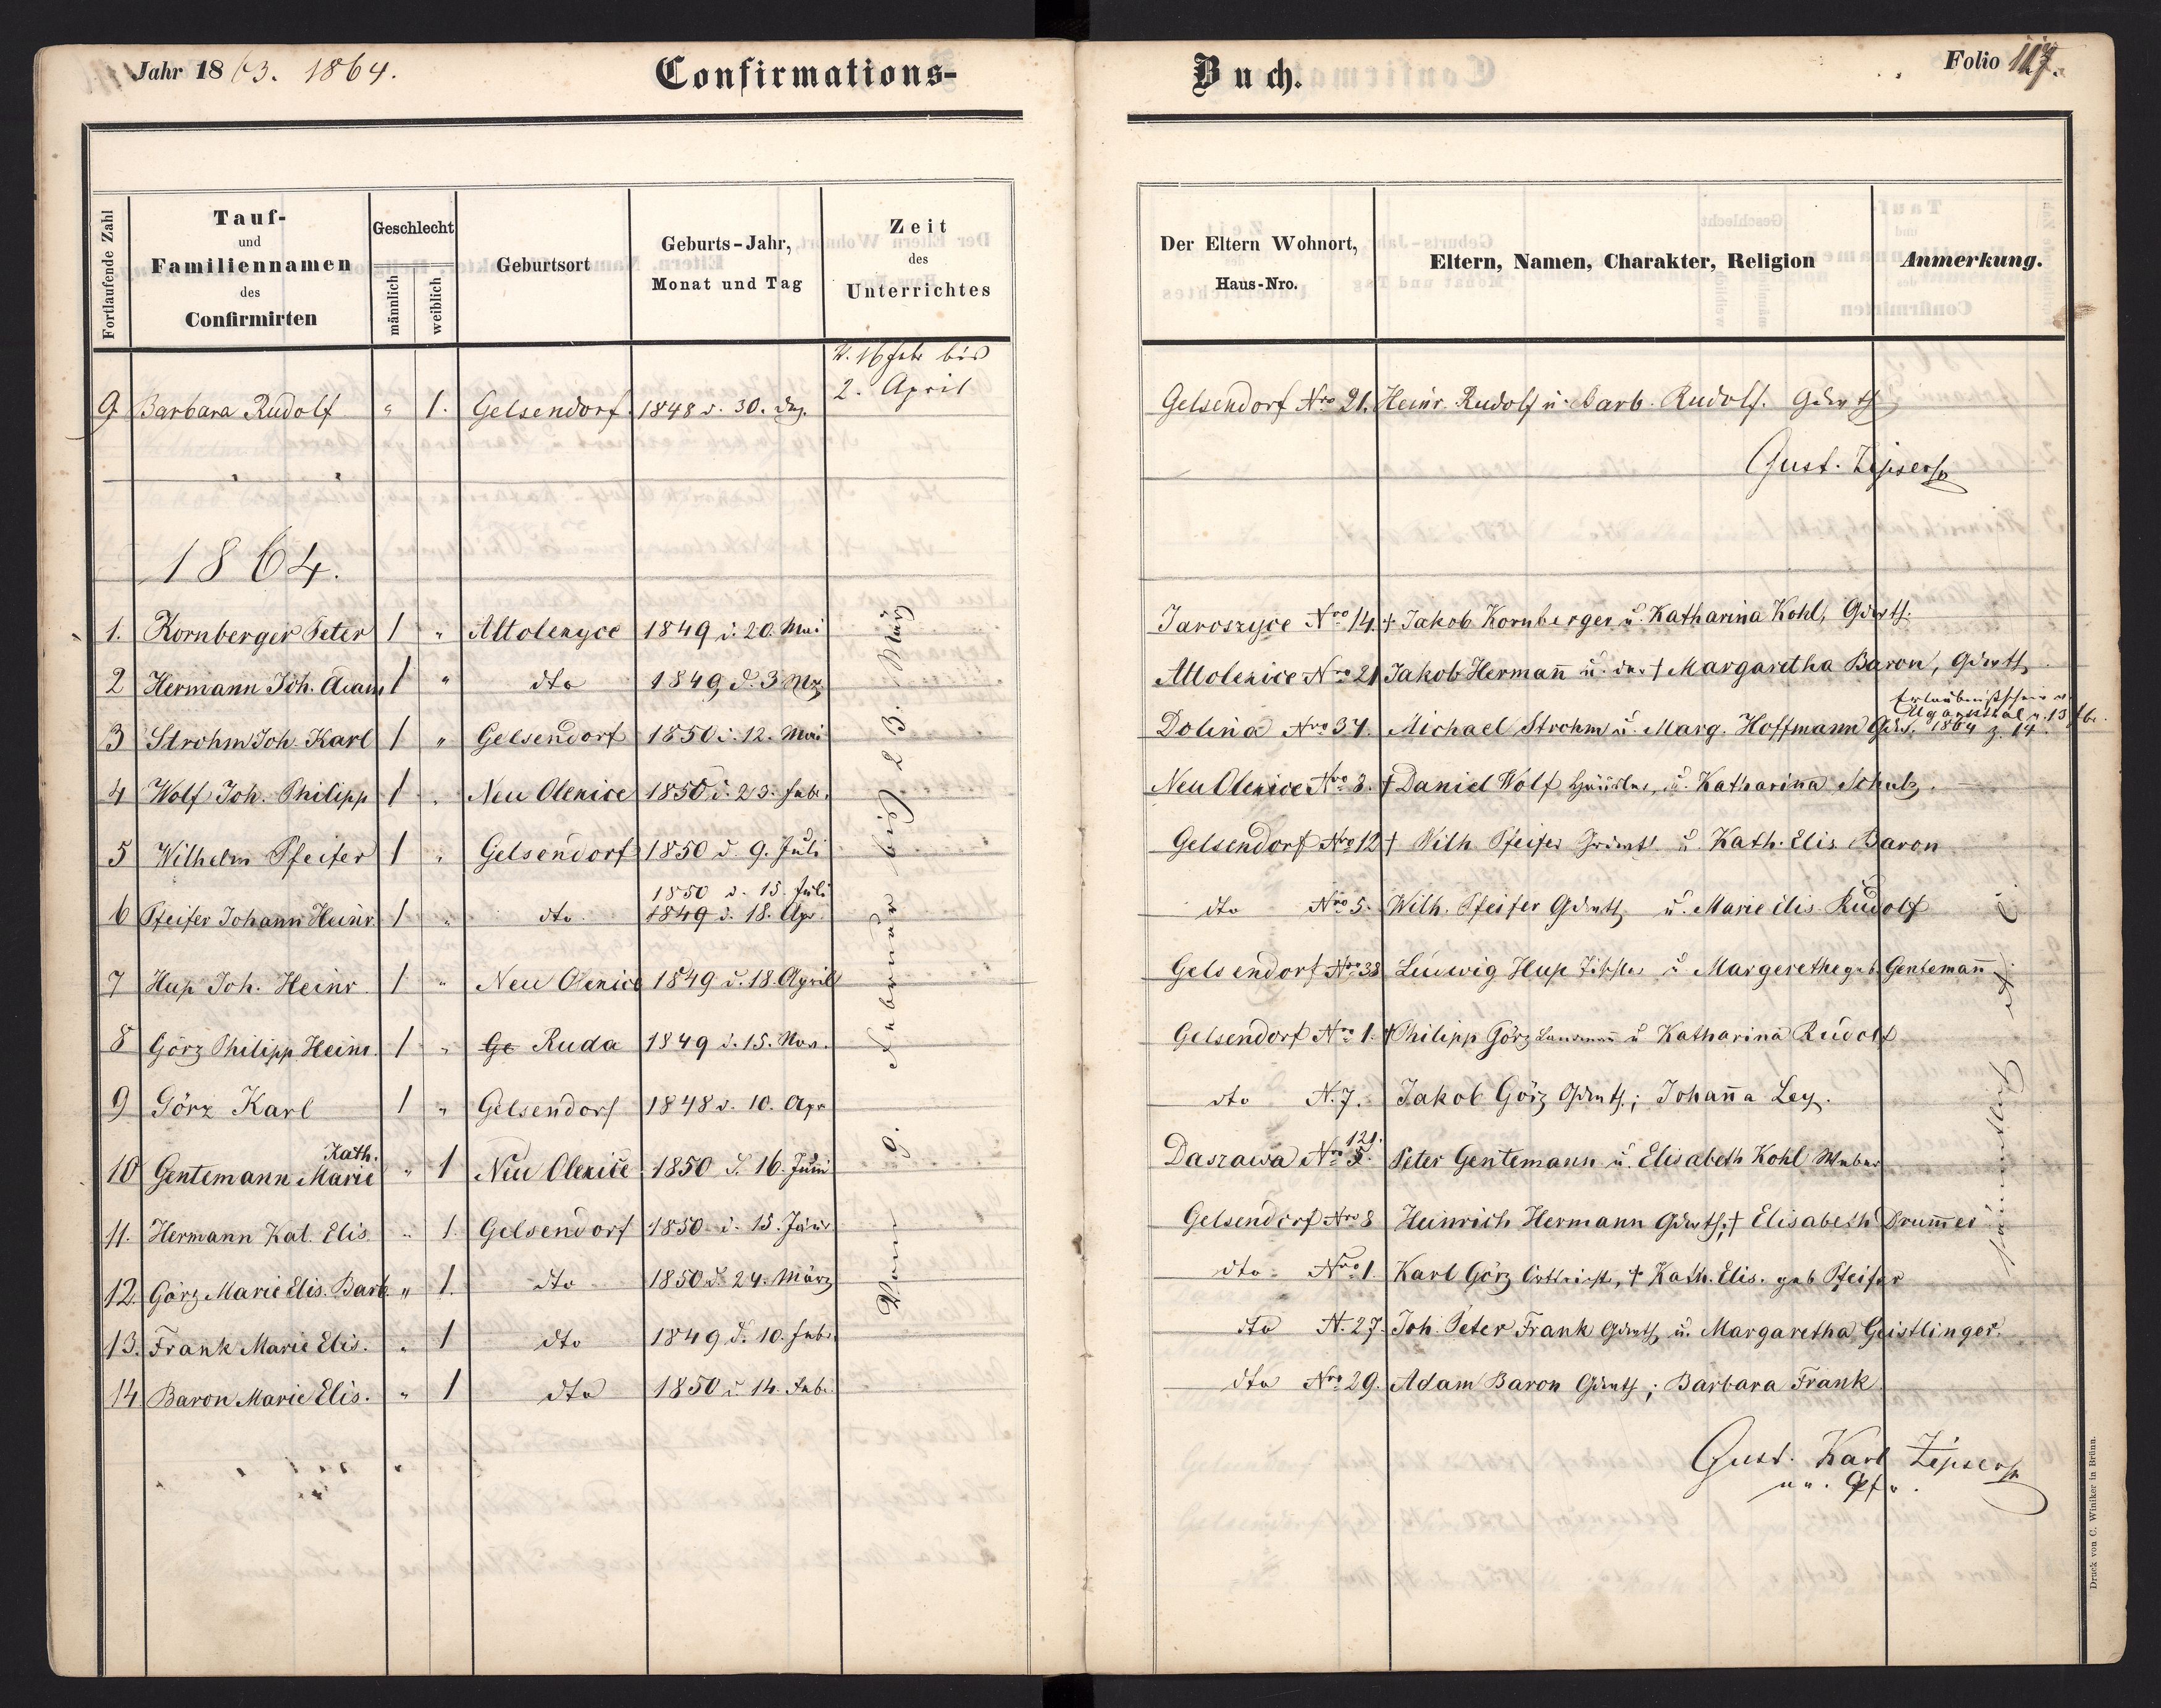 Jahr 1863. 1864.
Confirmations-
Buch.
Folio 117.
Fortlaufende Zahl
Tauf-
und
Familiennamen
des
Confirmirten
Geschlecht
männlich
weiblich
Geburtsort
Geburts-Jahr,
Monat und Tag
Zeit
des
Unterrichtes
Der Eltern Wohnort,
Haus-Nro.
Eltern, Namen, Charakter, Religion
Anmerkung.
v. 16 Febr bis
2. April
9 Barbara Rudolf " 1. Gelsendorf 1848 d. 30. Gelsendorf Nro 21. Heinr. Rudolf u. Barb. Rudolf. Grdwth
Gust. Zipser
1864.
1. Kornberger Peter 1 " Altolexyce 1849 d. 20. Mai Jaroszyce Nro 14. † Jakob Kornberger u. Katharina Kohl, Grdwth.
2 Hermann Joh. Adam 1 " dto 1849 d. 3 Mz. Altolexice Nro 21 Jakob Hermañ u. der † Margaretha Baron, Grdwth
3 Strohm Joh. Karl 1 " Gelsendorf 1850 d. 12. Mai Dolina Nro 34. Michael Strohm u. Marg. Hoffmann Grdw.
Erlaubnißschein v.
Ugartsthal v. 13 Feb.
1864 z. 14.
4 Wolf Joh. Philipp 1 " Neu Olexice 1850 d. 23. Febr. Neu Olexice Nro 3. † Daniel Wolf Häusler, u. Katharina Schulz.
5 Wilhelm Pfeifer 1 " Gelsendorf 1850 d. 9. Juli Gelsendorf Nro 12 † Wilh Pfeifer Grdwth u. Kath. Elis Baron
1850 d. 15. Juli
6 Pfeifer Johann Heinr. 1 " dto 1849 d. 18. Apr dto Nro 5. Wilh. Pfeifer Grdwth u. Marie Elis Rudolf
7 Hup Joh. Heinr 1 " Neu Olexice 1849 d. 18. April Gelsendorf Nro 38 Ludwig Hup u Margerethe geb. Gentemañ
8 Görz Philipp Heinr. 1 " Ge Ruda 1849 d. 15. Nov. Gelsendorf Nro 1. † Philipp Görz u Katharina Rudolf
9 Görz Karl 1 " Gelsendorf 1848 d. 10. Apr dto N. 7. Jakob Görz Grdwth; Johaña Ley.
Kath.
121.
10 Gentemann Marie " 1 Neu Olexice 1850 d. 16. Juni Daszawa Nro 5. Peter Gentemann u. Elisabeth Kohl Weber
11. Hermann Kat. Elis. " 1. Gelsendorf 1850 d. 15. Jänr Gelsendorf Nro 8 Heinrich Hermann Grdwth; † Elisabeth Brum̄er
12. Görz Marie Elis. Barb. " 1. dto 1850 d. 24. März dto Nro 1. Karl Görz Ortsrichter, † Kath. Elis. geb Pfeifer
13. Frank Marie Elis. " 1 dto 1849 d. 10. Febr. dto N. 27. Joh. Peter Frank Grdwth u. Margaretha Geistlinger.
14. Baron Marie Elis. " 1 dto 1850 d 14. Feb. dto Nro 29. Adam Baron Grdwth; Barbara Frank
Vom 9. Februar bis 23. März
sämmtlich A. C.
Gust. Karl Zipser
Druck von C. Winiker in Brünn.